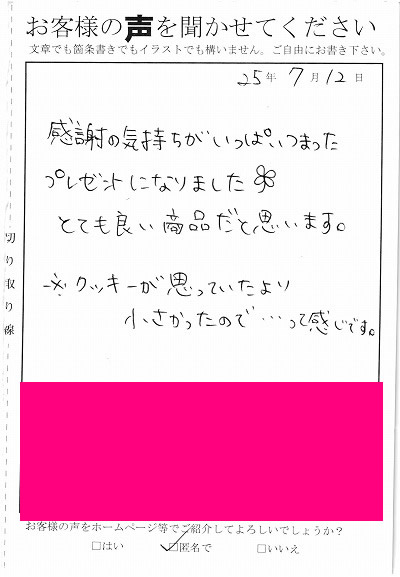 お客様の声を聞かせてください
文章でも箇条書きでもイラストでも構いません。ご自由にお書き下さい。
25年 7月12日
感謝の気持ちがいっぱいつまった
プレゼントになりました
とても良い商品だと思います。
※クッキーが思っていたより
小さかったので…って感じです。
切り取り線
お客様の声をホームページ等でご紹介してよろしいでしょうか?
□はい ☑匿名で □いいえ